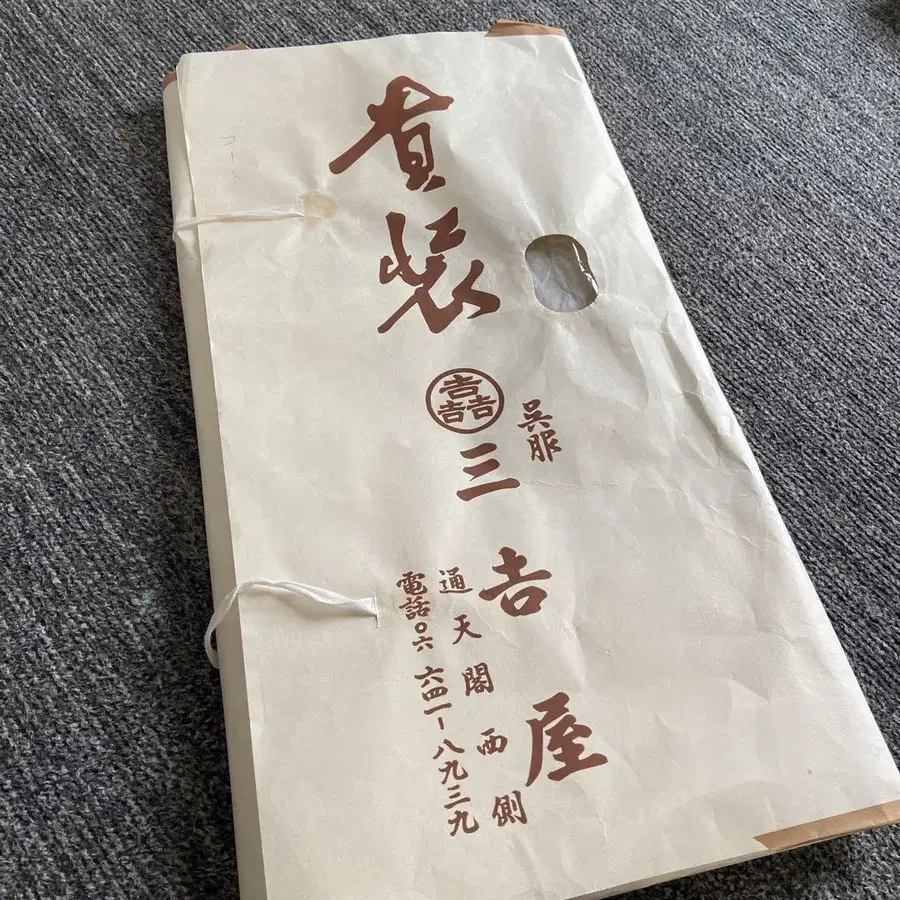 コート
装
𠮷𠮷𠮷
呉服
三𠮷屋
通天閣西側
電話〇六 六四一-八九三九